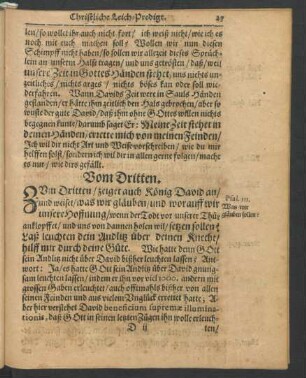 Christliche Leich-Predigt. 27
len/so wollet ihr auch nicht fort/ ich weiß nicht/wie ich es
noch mit euch machen soll? Wollen wir nun diesen
Schimpff nicht haben/ so sollen wir allezeit dieses Sprüch-
lein an unserm Halse tragen/ und uns getrösten/ daß/weil
unsere Zeit in Gottes Händen stehet, uns nichts un-
zeitliches/ nichts arges/ nichts böses kan oder soll wie-
derfahren. Wann Davids Zeit wert in Sauls Händen
gestanden/ er hätte ihn zeitlich den Hals gebrochen/aber so
wuste der gute David/ daß ihm ohne Gottes willen nichts
begegnen kunte/darumb saget Er: Meine Zeit stehet in
deinen Händen/ errette mich von meinen Feinden/
Ich wil dir nicht Art und Weise vorschreiben/ wie du mir
helffen solst/ sondern ich wil dir in allem gerne folgen/mache
es nur/ wie dirs gefällt.
Vom Dritten.
ZUm Dritten/ zeiget auch König David an/
und weiset/ was wir gläuben/ und worauff wir
unsere Hoffnung/ wenn der Tod vor unserer Thür
anklopffet/ und uns von dannen holen wil/ setzen sollen:
Laß leuchten dein Antlitz über deinen Knecht/
hilff mir durch deine Güte. Wie hatte denn GOtt
sein Antlitz nicht über David bißher leuchten lassen? Ant-
wort: Ja/ es hatte GOtt sein Antlitz über David gnung-
sam leuchten lassen/ indem er ihn vor viel 1000. andern mit
grossen Gaben erleuchtet/ auch offtmahls bißher von allen
seinen Feinden und aus vielem Unglück errettet hatte; A-
ber hier verstehet David beneficium supremæ illumina-
tionis, daß GOtt in seinen letzten Zügen ihn wolle erleuch-
D ii
ten/
Was wir
gläuben sollen: